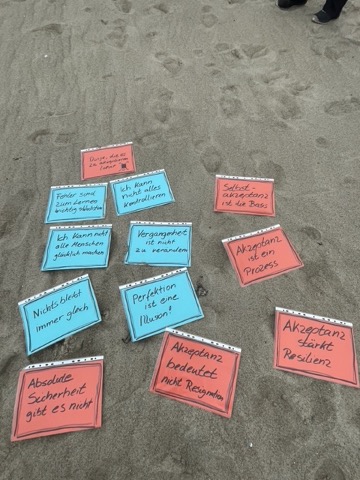 Dinge, die es
zu
Fehler sind
zum Lernen
wichtig
Ich kann
nicht alles
kontrollieren
Selbst-
akzeptanz
ist die Basis
Ich kann nicht
alle Menschen
glücklich machen
Vergangenheit
ist nicht
zu verändern
Akzeptanz
ist ein
Prozess
Nichts bleibt
immer gleich
Perfektion
ist eine
Illusion!
Akzeptanz
stärkt
Resilienz
Akzeptanz
bedeutet
nicht Resignation
Absolute
Sicherheit
gibt es nicht